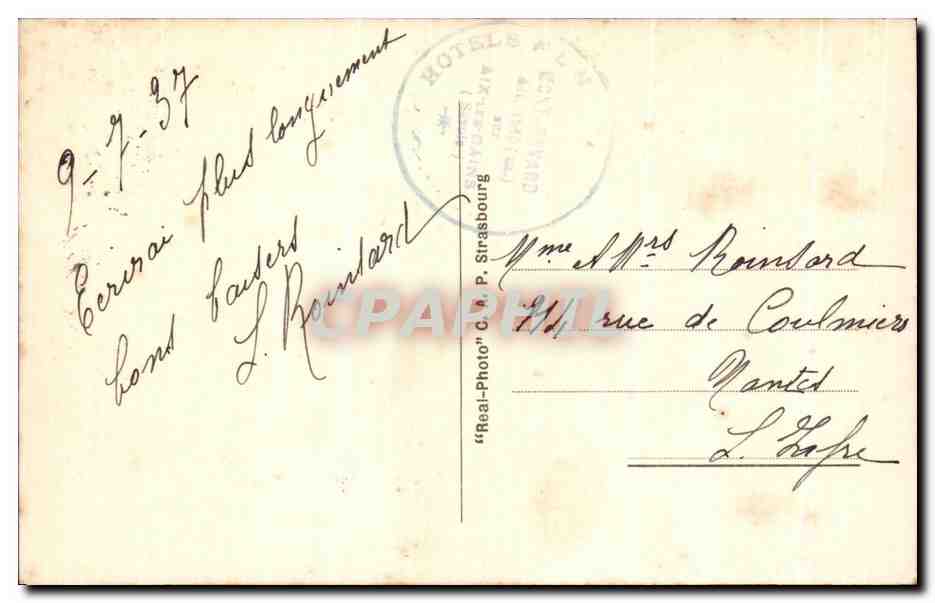 9-7-37
Ecrirai plus longuement
bons baisers
L. Roinsard
HOTELS
AIX-LES-BAINS
(Savoie)
"Real-Photo" C. A. P. Strasbourg
CPAPHIL
Mme Roinsard
rue de Coulmiers
Nantes
L. Infre